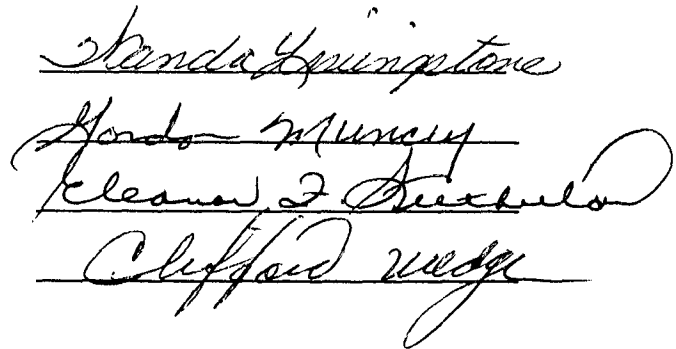 Wanda Livingstone
Gordon Muncey
Eleanor F.
Clifford Wedge